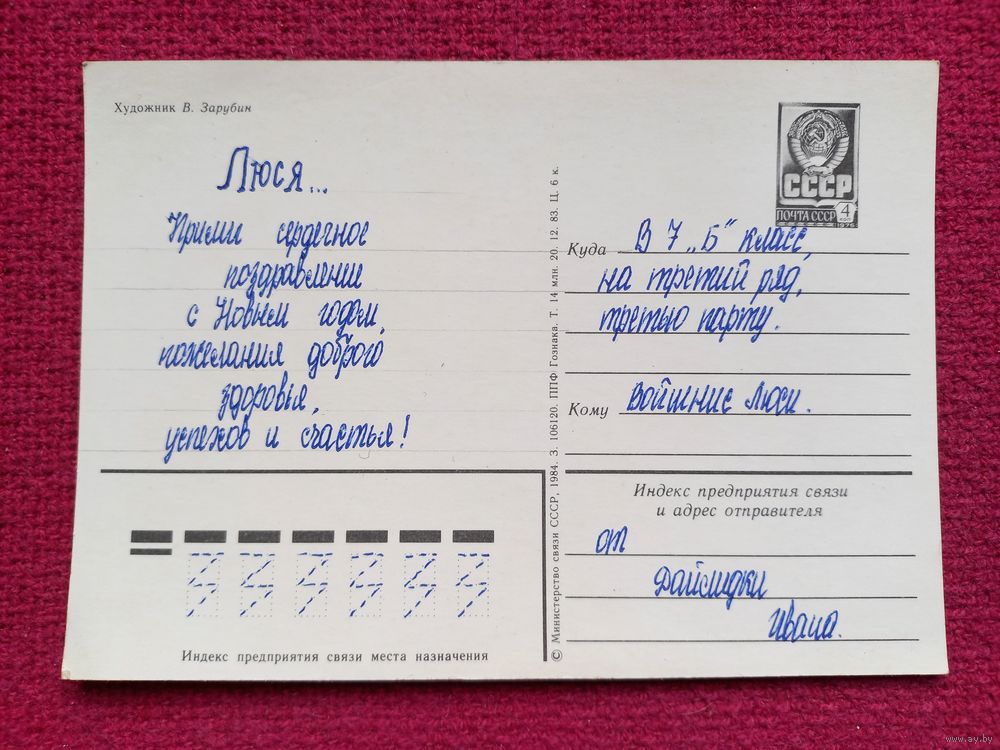 Художник В. Зарубин
Люся...
Прими сердечное
поздравление
с Новым годом,
пожелания доброго
здоровья,
успехов и счастья!
СССР
ПОЧТА СССР 4 коп
1976
Куда В 7 „Б" класс,
на третий ряд,
третью парту.
Кому Войтние Люси.
Индекс предприятия связи
и адрес отправителя
от
Дайлидки
Ивана.
Индекс предприятия связи места назначения
© Министерство связи СССР, 1984. З. 106120. ППФ Гознака. Т. 14 млн. 20. 12. 83. Ц. 6 к.
www.ay.by